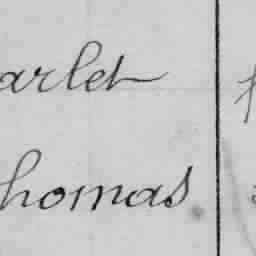 arlet
homas